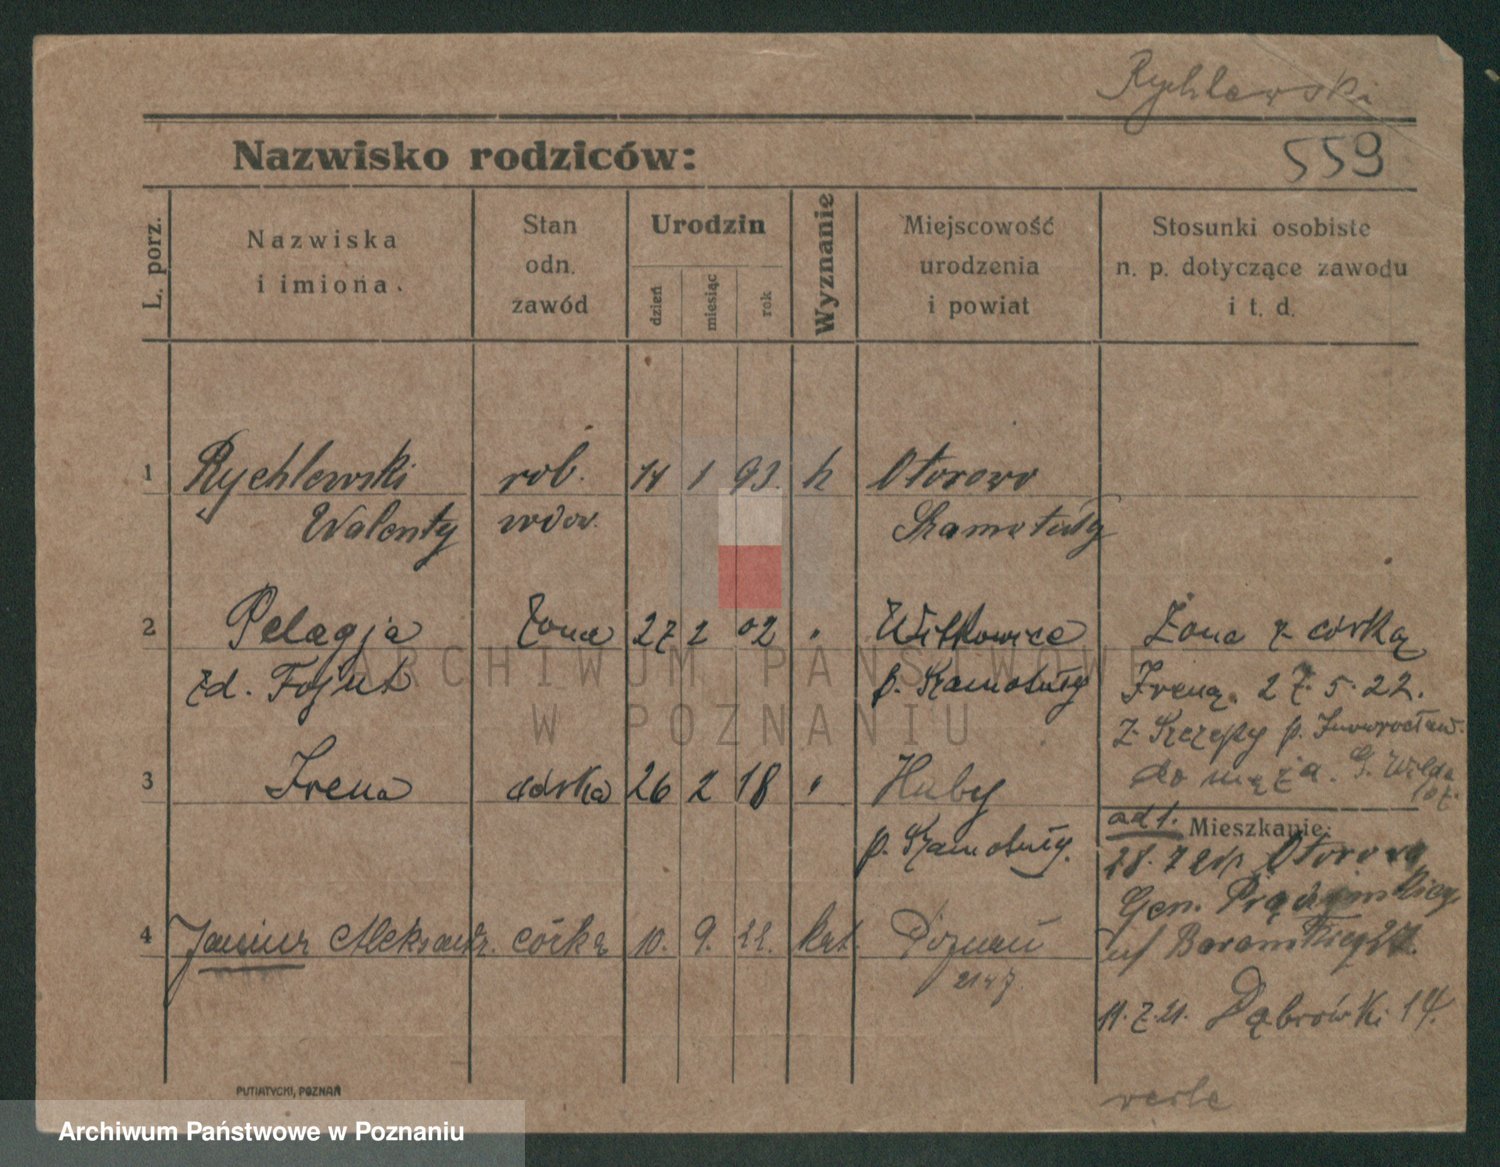 Rychlewski
559
Nazwisko rodziców:
L. porz.
Nazwiska
i imiona.
Stan
odn.
zawód
Urodzin
dzień
miesiąc
rok
Wyznanie
Miejscowość
urodzenia
i powiat
Stosunki osobiste
n. p. dotyczące zawodu
i t. d.
1 Rychlewski rob. 14 1 93. k Otorowo
Walenty wdow. Szamotuły
2 Pelagja żona 27 2 02 " Witkowice Żona z córką
zd. Fojut p. Szamotuły Ireną 27.5.22.
z p. Inowrocław.
3 Irena córka 26 2 18 " Huby do męża. G. Wilda
p. Szamotuły.
ad 1. Mieszkanie:
28.7 Otorowo
Gen. Prądzyńskiego
4 Aleksandr. córka 10. 9. 22. kat. Poznań
2147
11.7.21. Dąbrówki 14.
verte
PUTIATYCKI, POZNAŃ
ARCHIWUM PAŃSTWOWE
W POZNANIU
Archiwum Państwowe w Poznaniu